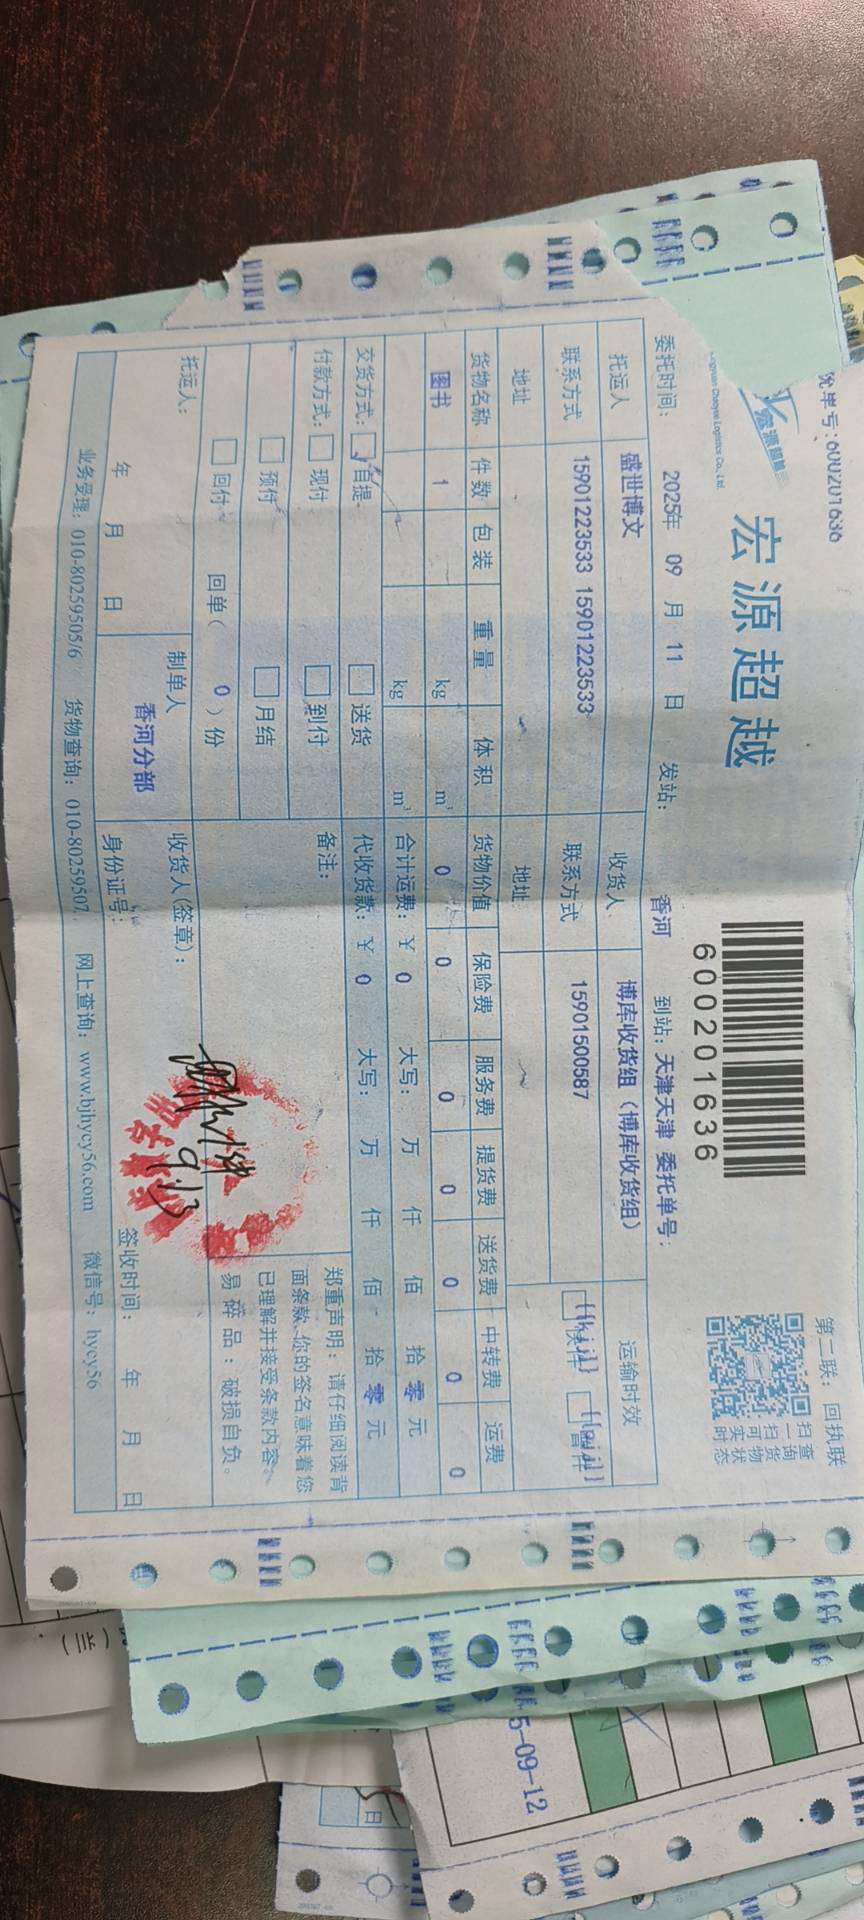 宏源超越
宏源超越
单号:600201636
600201636
第二联：回执联
扫一扫可实时
查询货物状态
委托时间： 2025年 09 月 11 日 发站： 香河 到站：天津天津 委托单号：
托运人 盛世博文 收货人 博库收货组（博库收货组） 运输时效
联系方式 15901223533 15901223533 联系方式 15901500587
地址 地址
货物名称 件数 包装 重量 体积 货物价值 保险费 服务费 提货费 送货费 中转费 运费
图书 1 kg m³ 0 0 0 0 0 0 0
kg m³ 合计运费：￥ 0 大写： 万 仟 佰 拾 零 元
交货方式： 自提 送货 代收货款：￥ 0 大写： 万 仟 佰 拾 零 元
付款方式： 现付 到付 备注：
预付 月结
回付 回单（ 0 ）份
郑重声明：请仔细阅读背
面条款，你的签名意味着您
已理解并接受条款内容。
易碎品：破损自负。
托运人： 制单人 收货人(签章)：
年 月 日 香河分部 身份证号： 签收时间： 年 月 日
9.13
业务受理：010-80259505/6 货物查询：010-80259507 网上查询：www.bjhycy56.com 微信号：hycy56
5-09-12
(兰)
日